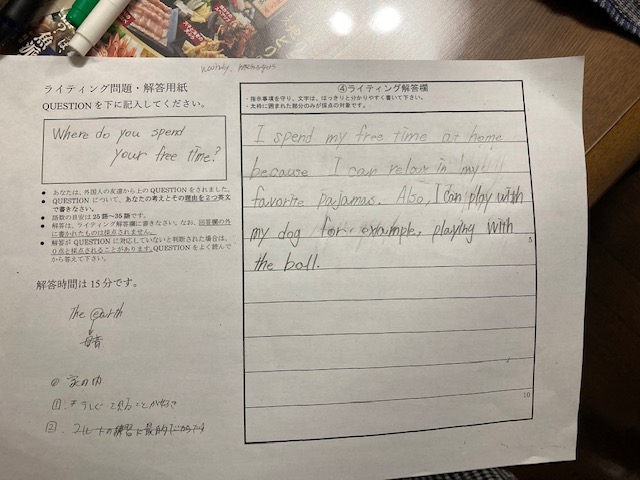 ライティング問題・解答用紙
QUESTIONを下に記入してください。
Where do you spend
your free time?
● あなたは、外国人の友達から上のQUESTIONをされました。
● QUESTIONについて、あなたの考えとその理由を2つ英文
で書きなさい。
● 語数の目安は25語〜35語です。
● 解答は、ライティング解答欄に書きなさい。なお、回答欄の外
に書かれたものは採点されません。
● 解答がQUESTIONに対応していないと判断された場合は、
0点と採点されることがあります。QUESTIONをよく読んで
から答えて下さい。
解答時間は15分です。
The earth
母音
① 家の中
④ライティング解答欄
・指示事項を守り、文字は、はっきりと分かりやすく書いて下さい。
・太枠に囲まれた部分のみが採点の対象です。
I spend my free time at home
because I can relax in my
favorite pajamas. Also, I can play with
my dog for example, playing with
the ball.
5
10